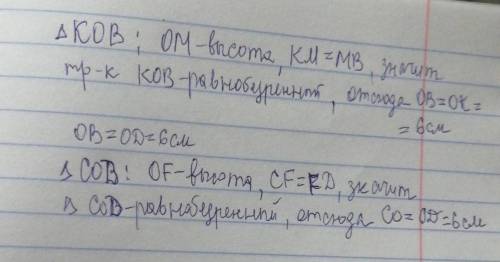 Δ KOB ; OM-высота, KM=MB, значит
тр-к KOB-равнобуренный, отсюда OB=OK=
= 6см
OB=OD=6см
Δ COD: OF-высота, CF=FD, значит
Δ COD-равнобуренный, отсюда CO=OD=6см